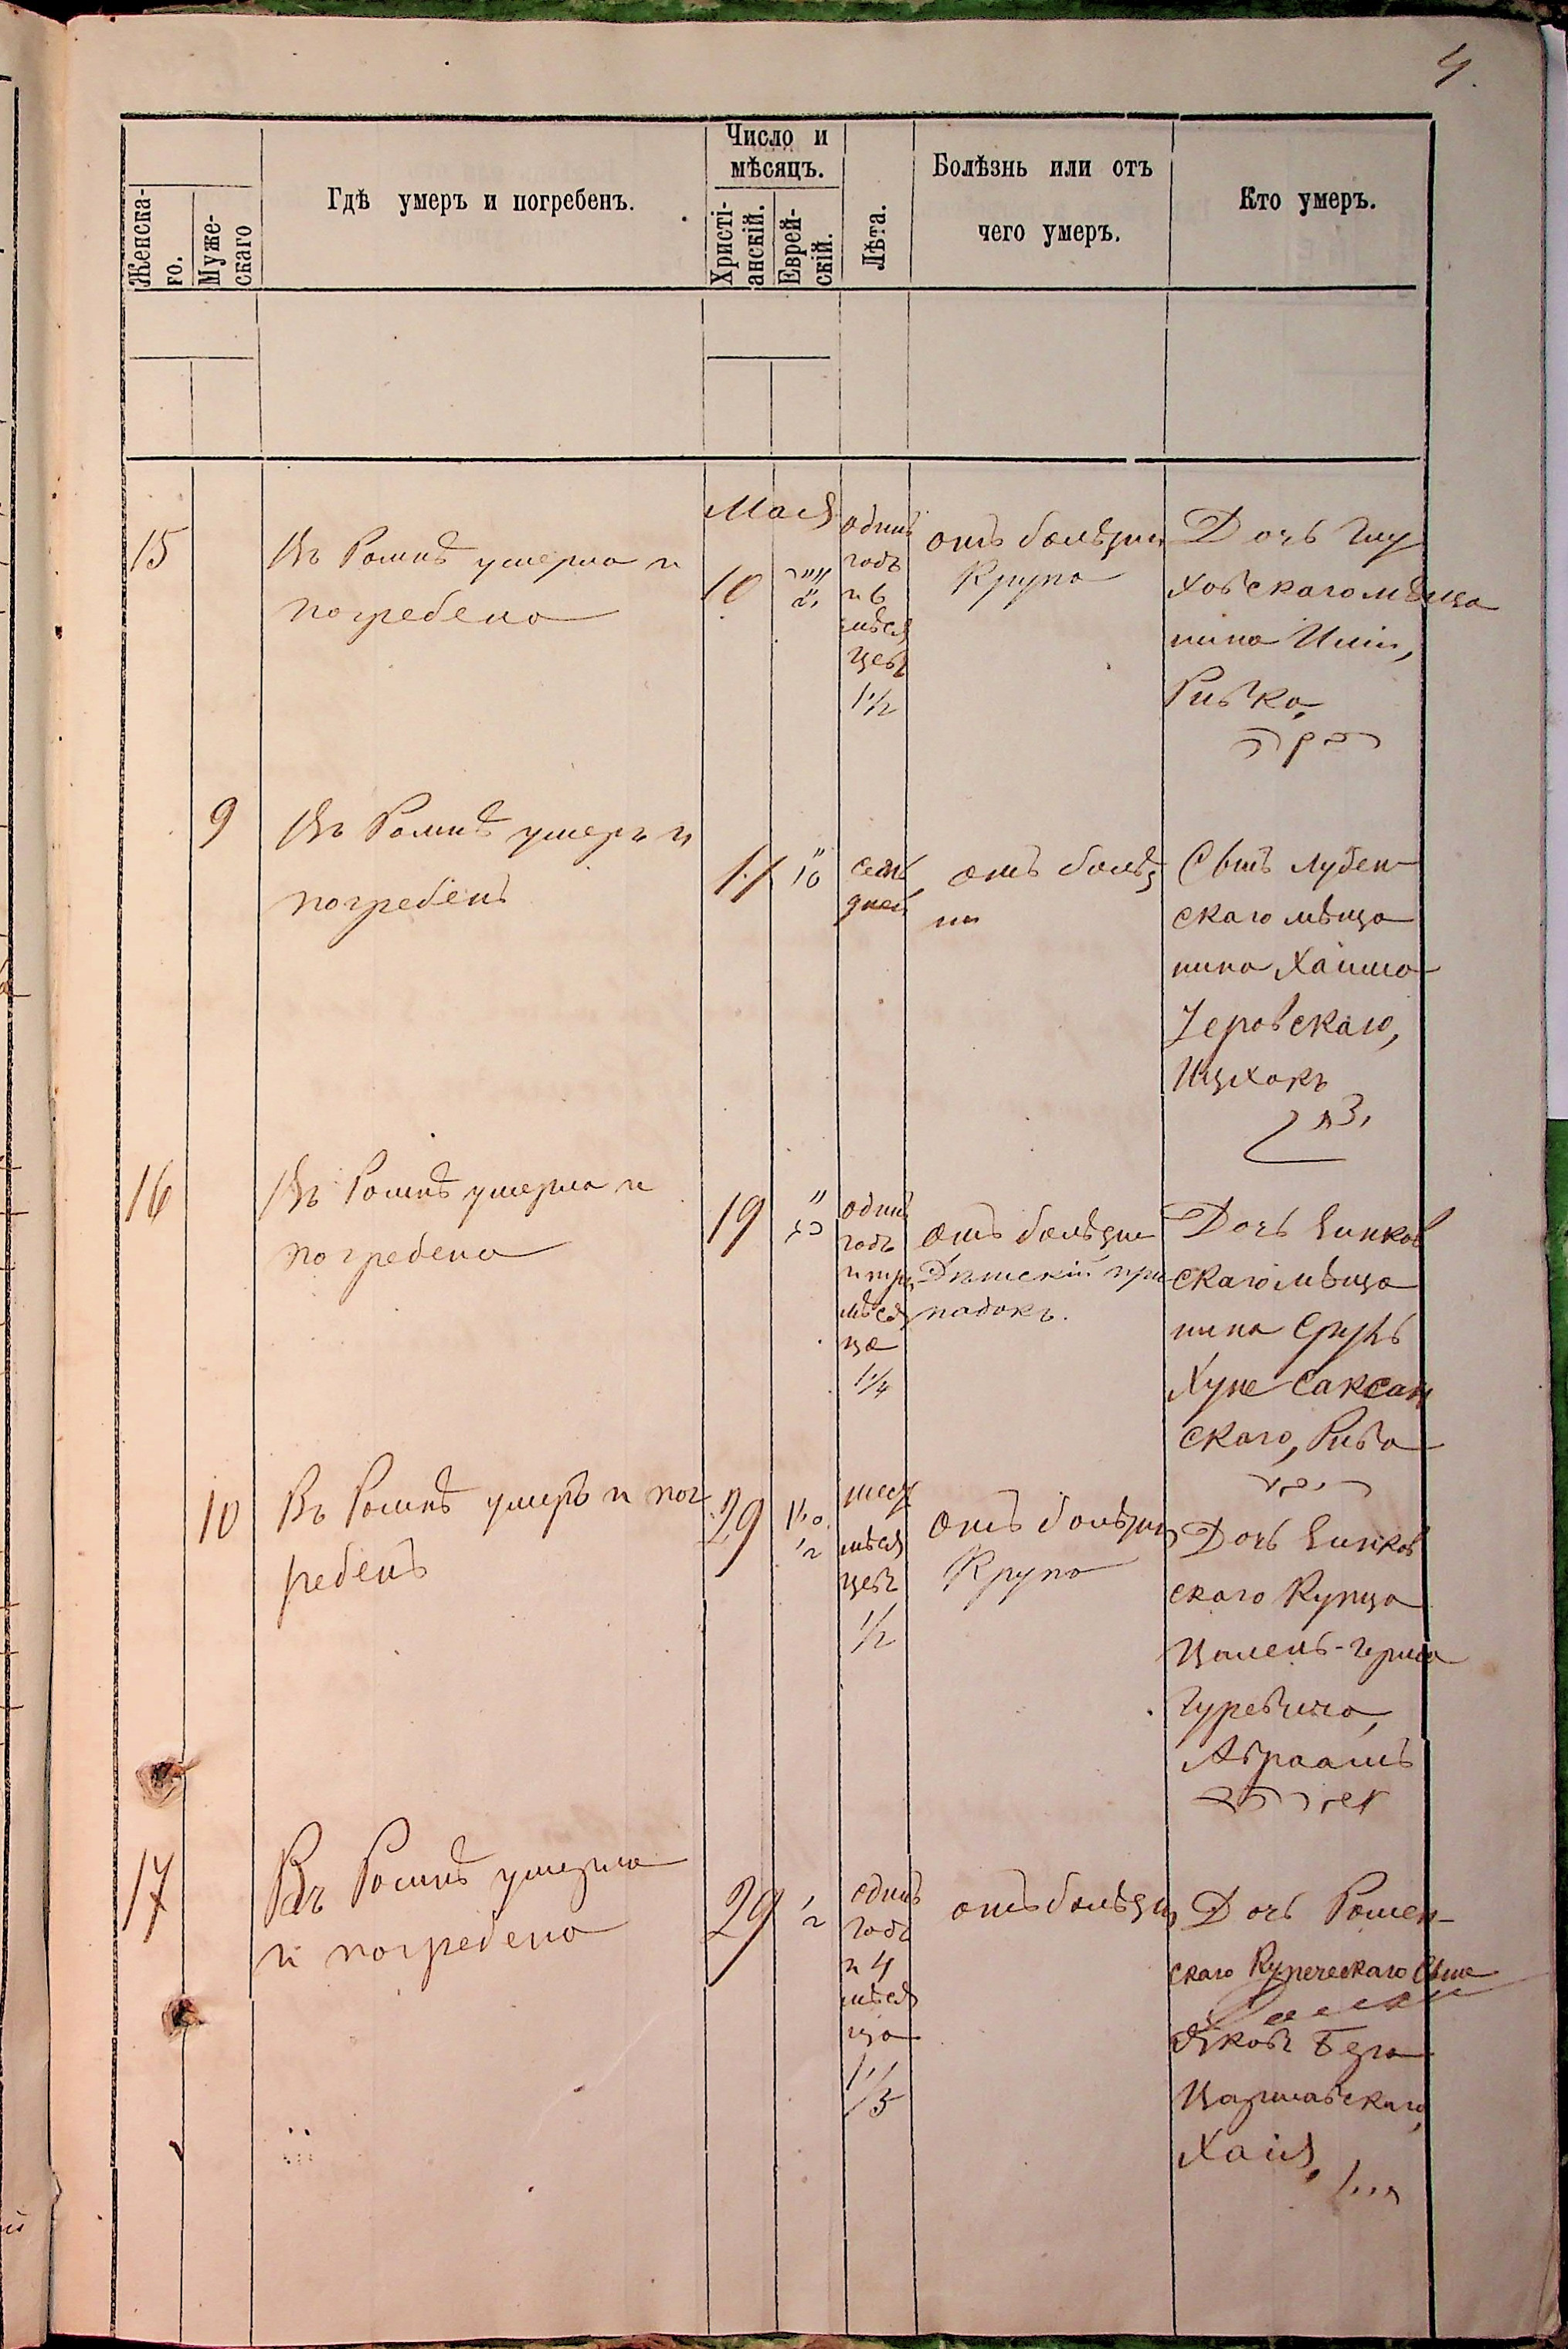 4.
Женска-
го.
Муже-
скаго
Гдѣ умеръ и погребенъ.
Число и
мѣсяцъ.
Христі-
анскій.
Еврей-
скій.
Лѣта.
Болѣзнь или отъ
чего умеръ.
Кто умеръ.
Мая
15
Въ Ромнѣ умерла и
погребена
10
одинъ
годъ
и 6
мѣся
цевъ
1 1/2
отъ болѣзни
Крупа
Дочь Глу
ховскаго мѣща
нина
Ривка,
9
Въ Ромнѣ умеръ и
погребенъ
11
семь
дней
отъ болѣз
ни
Сынъ Лубен-
скаго мѣща
нина Хаима
Ицхокъ
16
Въ Ромнѣ умерла и
погребена
19
одинъ
годъ
и три
мѣся
ца
1 1/4
отъ болѣзни
Дѣтскій при
падокъ.
Дочь Зинков
скаго мѣща
нина Сруль
Хуне Саксан
скаго, Рива
10
Въ Ромнѣ умеръ и пог
ребенъ
29
шесть
мѣся
цевъ
1/2
отъ болѣзни
Крупа
Дочь Зинков
скаго Купца
Гуревича,
Авраамъ
17
Въ Ромнѣ умерла
и погребена
29
одинъ
годъ
и 4
мѣся
ца
1 1/3
отъ болѣзни
Дочь Ромен-
скаго Купеческаго Сына
Яковъ
Варшавскаго,
Хаія,